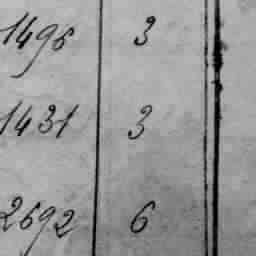 1496 3
1431 3
2692 6